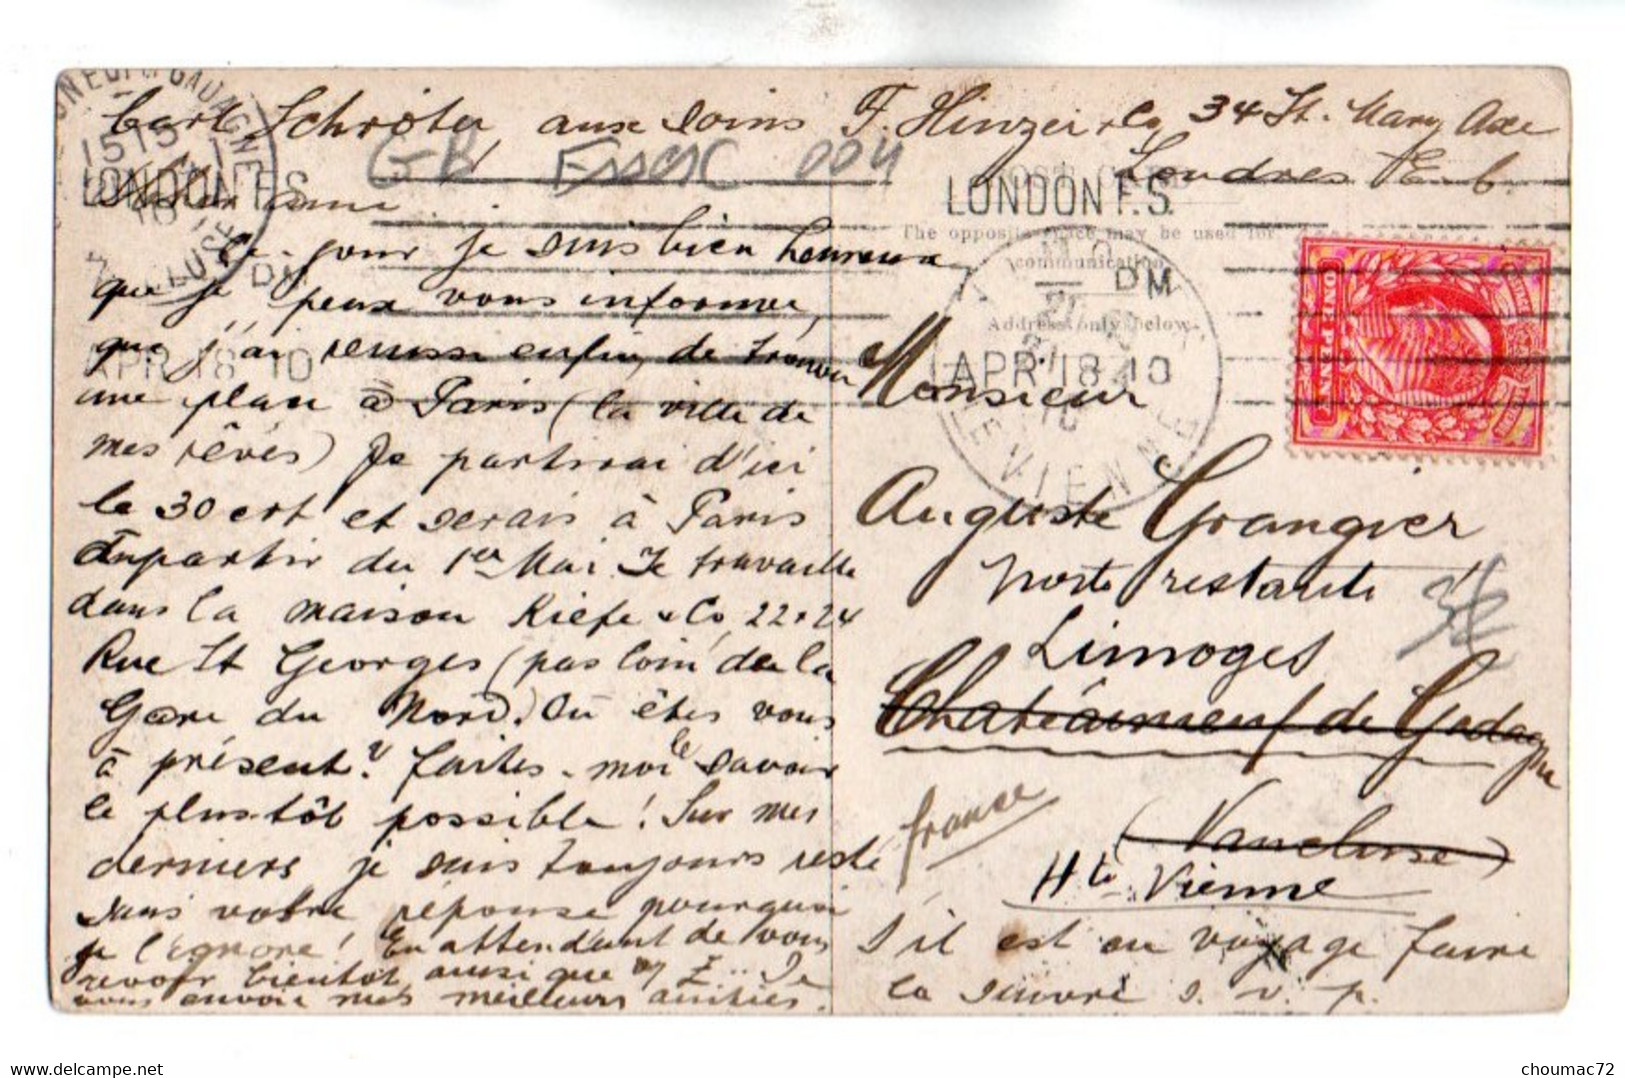 Carl Schröter aux soins F. Hinzei & Co, 34 St. Mary Axe
Londres E.C.
GB Essex 004
Cher ami
Ce jour je suis bien heureux
que je peux vous informer,
que j'ai réussi enfin, de trouver
une place à Paris (la ville de
mes rêves) Je partirai d'ici
le 30 crt et serais à Paris
àpartir du 1er Mai. Je travaille
dans la maison Kiefe & Co, 22+24
Rue St Georges (pas loin de la
Gare du Nord). Où êtes vous
à présent? Faites-moi le savoir
le plustôt possible! Sur mes
derniers je suis toujours resté
sans votre réponse pourquoi
je l'ignore! En attendant de vous
revoir bientôt ainsi que Je
vous envoie mes meilleurs amitiés.
POST CARD
The opposite space may be used for
communication
Address only below
Monsieur
Auguste Grangier
Poste restante
Limoges
Chateauneuf de Gadagne
(Vaucluse)
France
Hte Vienne
S'il est en voyage faire
la suivre s. v. p.
LONDON F.S.
APR 18 10
DM
LONDON F.S.
APR 18 10
DM
15 15
VAUCLUSE
VIENNE
ONE PENNY
Delcampe.net
choumac72